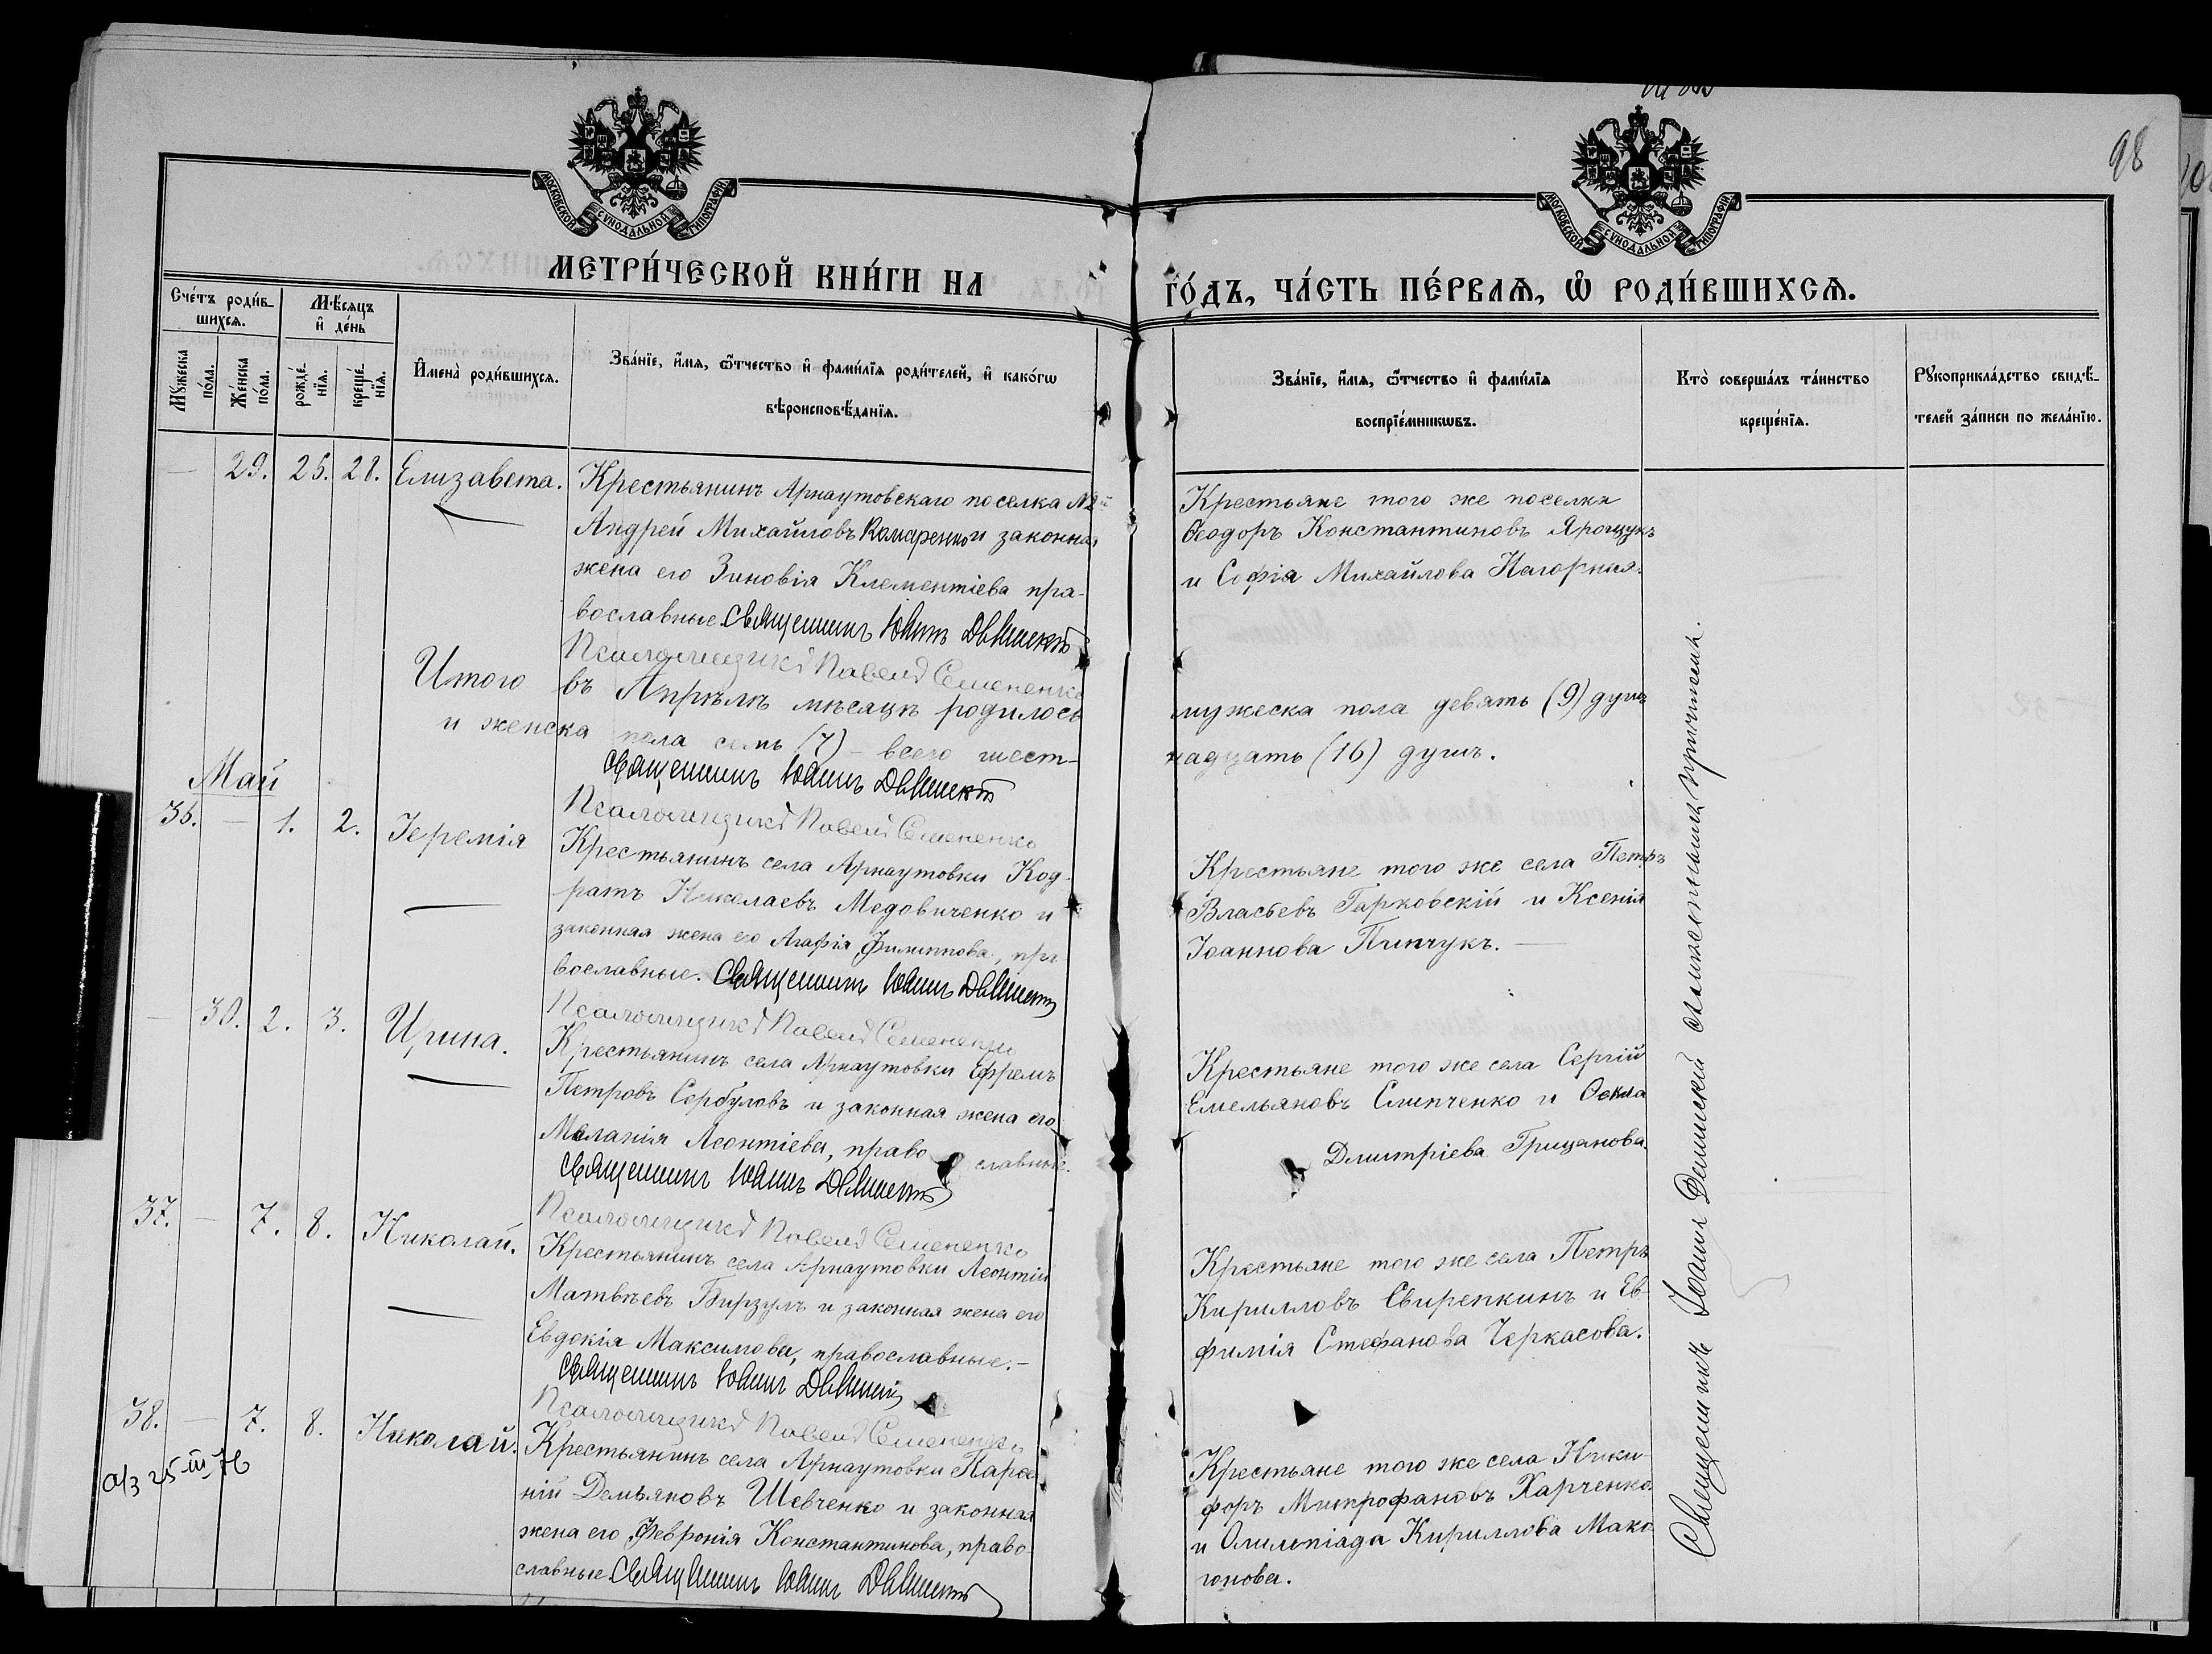 98
МОСКОВСКОЙ СѴНОДАЛЬНОЙ ТИПОГРАФІИ
МОСКОВСКОЙ СѴНОДАЛЬНОЙ ТИПОГРАФІИ
МЕТРИ́ЧЕСКОЙ КНИ́ГИ НА
ГО́ДЪ, ЧА́СТЬ ПЕ́РВАѦ, Ѡ҆ РОДИ́ВШИХСѦ.
Сче́тъ роди́в-
шихсѧ.
Мꙋ́жеска
по́ла.
Же́нска
по́ла.
Мѣ́сѧцъ
и҆ де́нь
рожде́-
нїѧ.
креще́-
нїѧ.
И҆мена̀ роди́вшихсѧ.
Зва́нїе, и҆́мѧ, ѻ҆́тчество и҆ фами́лїѧ роди́телей, и҆ како́гѡ
вѣроисповѣ́данїѧ.
Зва́нїе, и҆́мѧ, ѻ҆́тчество и҆ фами́лїѧ
воспрїе́мникѡвъ.
Кто̀ соверша́лъ та́инство
креще́нїѧ.
Рꙋкоприкла́дство свидѣ́-
телей за́писи по жела́нїю.
— 29. 25. 28. Елизавета.
Крестьянинъ Арнаутовскаго поселка №2й
Андрей Михайловъ Комаренко и законная
жена его Зиновія Клементіева пра-
вославные. Священникъ Іоаннъ Деминскій
Псаломщикъ Павелъ Семененко
Крестьяне того же поселка
Ѳеодоръ Константиновъ Ярощукъ
и Софія Михайлова Нагорная.
Итого въ Апрѣлѣ мѣсяцѣ родилось
мужеска пола девять (9) душъ
и женска пола семь (7) – всего шест-
надцать (16) душъ.
Священникъ Іоаннъ Деминскій
Псаломщикъ Павелъ Семененко
Май
36. — 1. 2. Іеремія
Крестьянинъ села Арнаутовки Код-
ратъ Николаевъ Медовиченко и
законная жена его Агафія Филиппова, пра-
вославные. Священникъ Іоаннъ Деминскій
Псаломщикъ Павелъ Семененко
Крестьяне того же села Петръ
Власьевъ Гарковскій и Ксенія
Іоаннова Пинчукъ. —
— 30. 2. 3. Ирина.
Крестьянинъ села Арнаутовки Ефремъ
Петровъ Сербуловъ и законная жена его
Меланія Леонтіева, право славные.
Священникъ Іоаннъ Деминскій
Псаломщикъ Павелъ Семененко
Крестьяне того же села Сергій
Емельяновъ Слипченко и Ѳекла
Дмитріева Грицанова.
37. — 7. 8. Николай.
Крестьянинъ села Арнаутовки Леонтій
Матвѣевъ Бирзулъ и законная жена его
Евдокія Максимова, православные. –
Священникъ Іоаннъ Деминскій
Псаломщикъ Павелъ Семененко
Крестьяне того же села Петръ
Кирилловъ Свирепкинъ и Ев-
фимія Стефанова Черкасова.
38. — 7. 8. Николай.
а/з 25-III-76
Крестьянинъ села Арнаутовки
Демьяновъ Шевченко и законная
жена его Февронія Константинова, право-
славные. Священникъ Іоаннъ Деминскій
Крестьяне того же села Ники-
форъ Митрофановъ Харченко
и Олимпіада Кириллова Мако-
гонова.
Священникъ Іоаннъ Деминскій съ псаломщикомъ